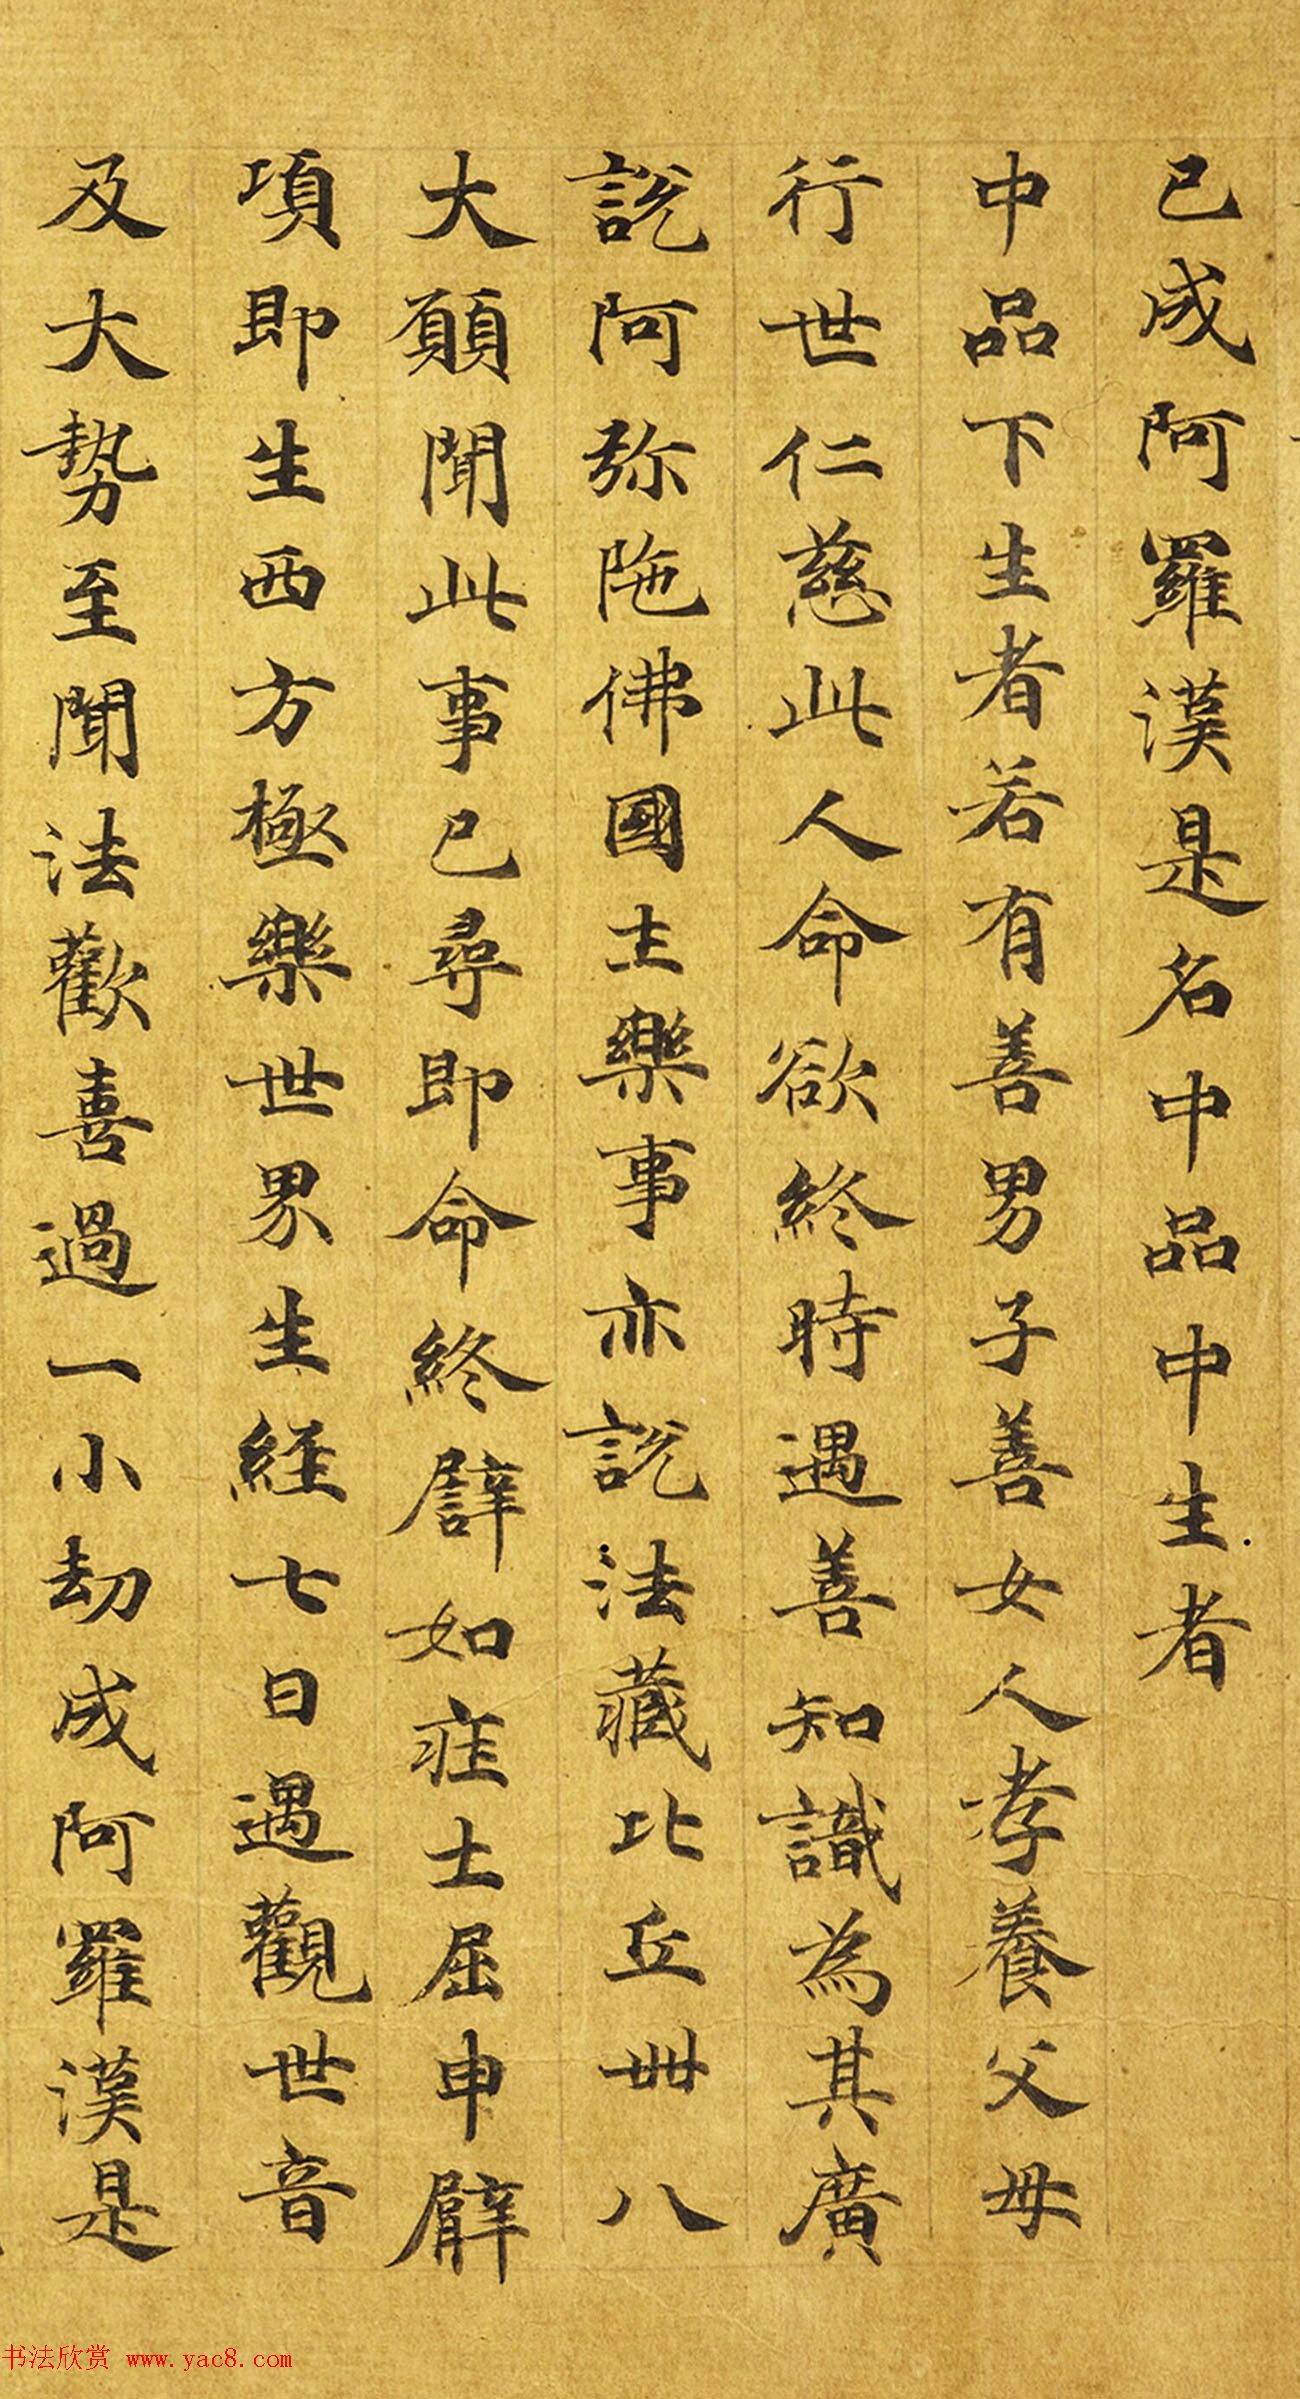 已成阿羅漢是名中品中生者
中品下生者若有善男子善女人孝養父母
行世仁慈此人命欲終時遇善知識為其廣
說阿弥陁佛國土樂事亦說法藏比丘卌八
大願聞此事已尋即命終譬如壮士屈申臂
項即生西方極樂世界生經七日遇觀世音
及大勢至聞法歡喜過一小劫成阿羅漢是
书法欣赏 www.yac8.com